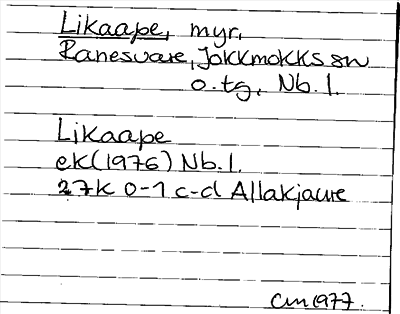 Likaape, myr,
Ranesvare, Jokkmokks sn
o. tg, Nb. l.
Likaape
ek (1976) Nb. l.
27K 0-1 c-d Allakjaure
CM 1977.